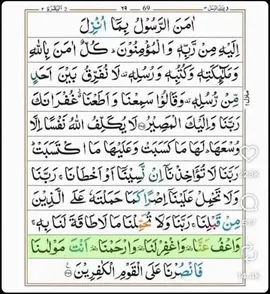 اٰمَنَ الرَّسُوْلُ بِمَاۤ اُنْزِلَ
اِلَیْهِ مِنْ رَّبِّهٖ وَ الْمُؤْمِنُوْنَ ؕ كُلٌّ اٰمَنَ بِاللّٰهِ
وَ مَلٰٓىِٕكَتِهٖ وَ كُتُبِهٖ وَ رُسُلِهٖ ۫ لَا نُفَرِّقُ بَیْنَ اَحَدٍ
مِّنْ رُّسُلِهٖ ۫ وَ قَالُوْا سَمِعْنَا وَ اَطَعْنَا ٘ غُفْرَانَكَ
رَبَّنَا وَ اِلَیْكَ الْمَصِیْرُ لَا یُكَلِّفُ اللّٰهُ نَفْسًا اِلَّا
وُسْعَهَا ؕ لَهَا مَا كَسَبَتْ وَ عَلَیْهَا مَا اكْتَسَبَتْ ؕ
رَبَّنَا لَا تُؤَاخِذْنَاۤ اِنْ نَّسِیْنَاۤ اَوْ اَخْطَاْنَا ۚ رَبَّنَا
وَ لَا تَحْمِلْ عَلَیْنَاۤ اِصْرًا كَمَا حَمَلْتَهٗ عَلَى الَّذِیْنَ
مِنْ قَبْلِنَا ۚ رَبَّنَا وَ لَا تُحَمِّلْنَا مَا لَا طَاقَةَ لَنَا بِهٖ ۚ
وَ اعْفُ عَنَّا ٙ وَ اغْفِرْ لَنَا ٙ وَ ارْحَمْنَا ٙ اَنْتَ مَوْلٰىنَا
فَانْصُرْنَا عَلَى الْقَوْمِ الْكٰفِرِیْنَ